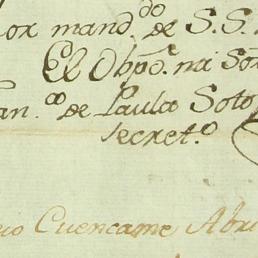 mand.do de S.S.
El Obpõ. mi Señ
an.co de Paula Soto
Secret.o
Cuencame Abri